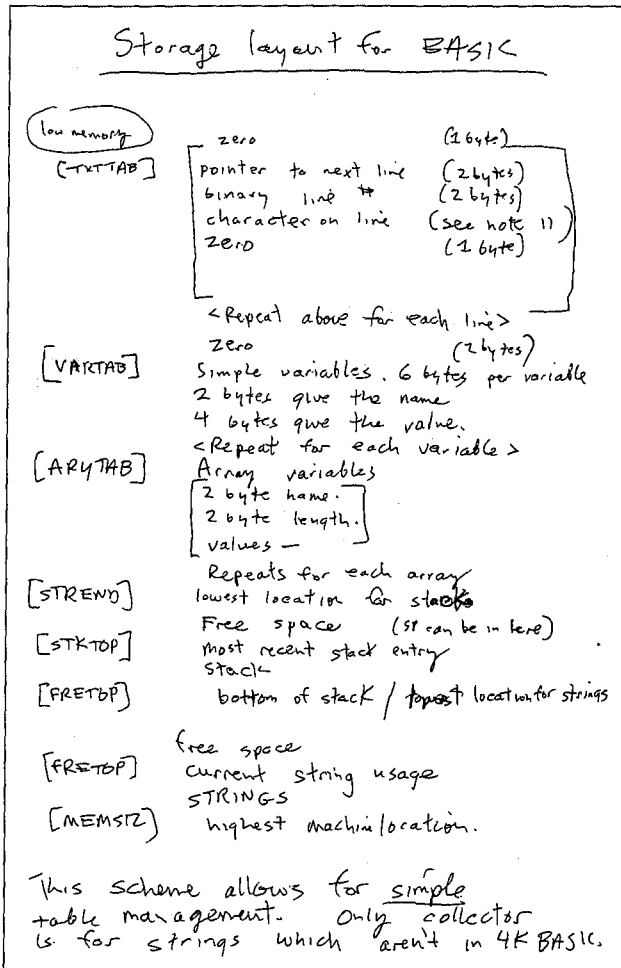 Storage layout for BASIC
low memory
zero (1 byte)
[TXTTAB]
pointer to next line (2 bytes)
binary line # (2 bytes)
character on line (see note 1)
zero (1 byte)
<Repeat above for each line>
zero (2 bytes)
[VARTAB] Simple variables. 6 bytes per variable
2 bytes give the name
4 bytes give the value.
<Repeat for each variable>
[ARYTAB] Array variables
2 byte name.
2 byte length.
values —
Repeats for each array
[STREND] lowest location for stack
Free space (SP can be in here)
[STKTOP] most recent stack entry
stack
[FRETOP] bottom of stack / location for strings
free space
[FRETOP] current string usage
STRINGS
[MEMSIZ] highest machine location.
This scheme allows for simple
table management. Only collector
is for strings which aren't in 4K BASIC.